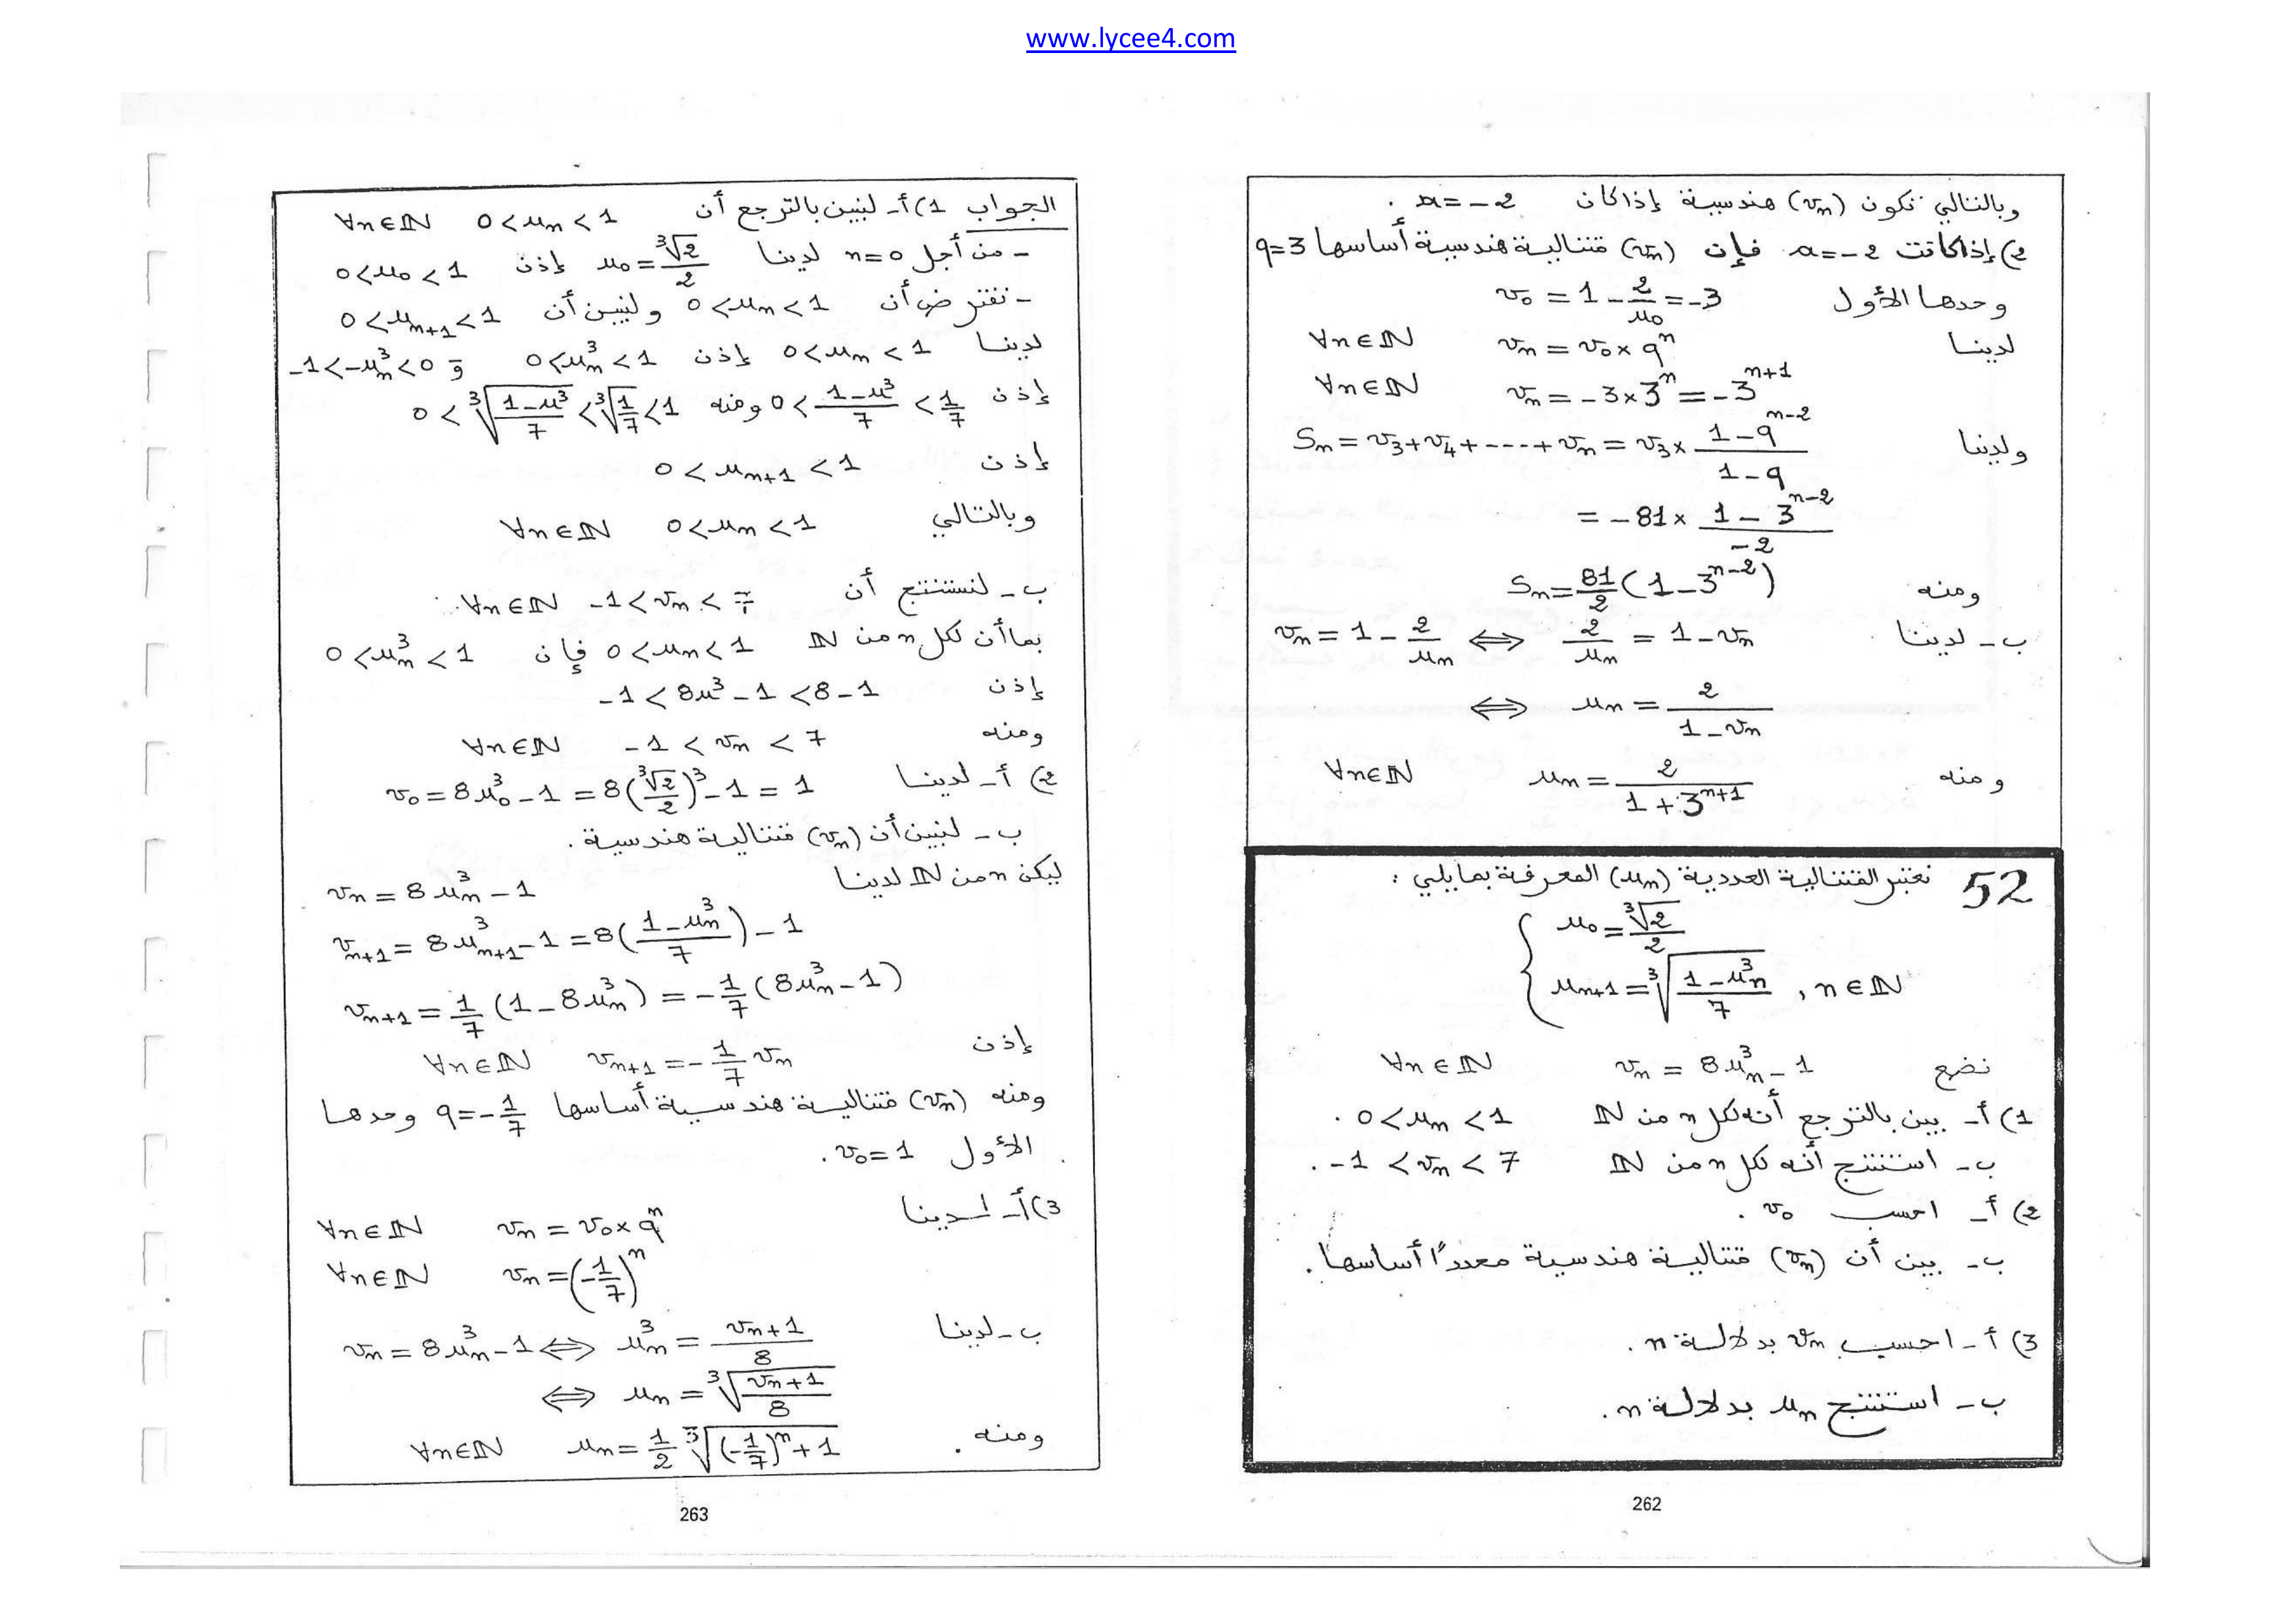 www.lycee4.com
وبالتالي تكون (vₙ) هندسية إذا كان a = -2 .
2) إذا كانت a = -2 فإن (vₙ) متتالية هندسية أساسها q = 3
وحدها الأول v₀ = 1 - 2/u₀ = -3
لدينا vₙ = v₀ × qⁿ ∀n∈ℕ
vₙ = -3 × 3ⁿ = -3ⁿ⁺¹ ∀n∈ℕ
ولدينا Sₙ = v₃ + v₄ + ---- + vₙ = v₃ × (1 - qⁿ⁻²)/(1 - q)
= -81 × (1 - 3ⁿ⁻²)/(-2)
ومنه Sₙ = 81/2 (1 - 3ⁿ⁻²)
ب - لدينا vₙ = 1 - 2/uₙ ⟺ 2/uₙ = 1 - vₙ
⟺ uₙ = 2/(1 - vₙ)
ومنه uₙ = 2/(1 + 3ⁿ⁺¹) ∀n∈ℕ
52 نعتبر المتتالية العددية (uₙ) المعرفة بما يلي :
u₀ = ∛2/2
uₙ₊₁ = ∛((1 - uₙ³)/7) , n∈ℕ
نضع vₙ = 8uₙ³ - 1 ∀n∈ℕ
1) أ - بين بالترجع أنه لكل n من ℕ 0 < uₙ < 1 .
ب - استنتج أنه لكل n من ℕ -1 < vₙ < 7 .
2) أ - احسب v₀ .
ب - بين أن (vₙ) متتالية هندسية محددًا أساسها .
3) أ - احسب vₙ بدلالة n .
ب - استنتج uₙ بدلالة n .
262
الجواب 1) أ - لنبين بالترجع أن 0 < uₙ < 1 ∀n∈ℕ
- من أجل n = 0 لدينا u₀ = ∛2/2 إذن 0 < u₀ < 1
- نفترض أن 0 < uₙ < 1 ولنبين أن 0 < uₙ₊₁ < 1
لدينا 0 < uₙ < 1 إذن 0 < uₙ³ < 1 و -1 < -uₙ³ < 0
إذن 0 < (1 - u³)/7 < 1/7 ومنه 0 < ∛((1 - u³)/7) < ∛(1/7) < 1
إذن 0 < uₙ₊₁ < 1
وبالتالي 0 < uₙ < 1 ∀n∈ℕ
ب - لنستنتج أن -1 < vₙ < 7 ∀n∈ℕ
بما أن لكل n من ℕ 0 < uₙ < 1 فإن 0 < uₙ³ < 1
إذن -1 < 8u³ - 1 < 8 - 1
ومنه -1 < vₙ < 7 ∀n∈ℕ
2) أ - لدينا v₀ = 8u₀³ - 1 = 8(∛2/2)³ - 1 = 1
ب - لنبين أن (vₙ) متتالية هندسية .
ليكن n من ℕ لدينا vₙ = 8uₙ³ - 1
vₙ₊₁ = 8uₙ₊₁³ - 1 = 8((1 - uₙ³)/7) - 1
vₙ₊₁ = 1/7 (1 - 8uₙ³) = -1/7 (8uₙ³ - 1)
إذن vₙ₊₁ = -1/7 vₙ ∀n∈ℕ
ومنه (vₙ) متتالية هندسية أساسها q = -1/7 وحدها
الأول v₀ = 1 .
3) أ - لدينا vₙ = v₀ × qⁿ ∀n∈ℕ
vₙ = (-1/7)ⁿ ∀n∈ℕ
ب - لدينا vₙ = 8uₙ³ - 1 ⟺ uₙ³ = (vₙ + 1)/8
⟺ uₙ = ∛((vₙ + 1)/8)
ومنه uₙ = 1/2 ∛((-1/7)ⁿ + 1) ∀n∈ℕ
263